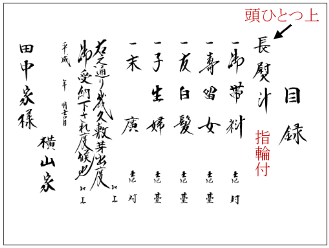 頭ひとつ上
目録
長熨斗
指輪付
一御帯料 壱 封
一寿留女 壱 臺
一友白髪 壱 臺
一子生婦 壱 臺
一末廣 壱 対
右之通り幾久敷芽出度
御受納下され度候也 以上
平成 年 月吉日
横山家
田中家様